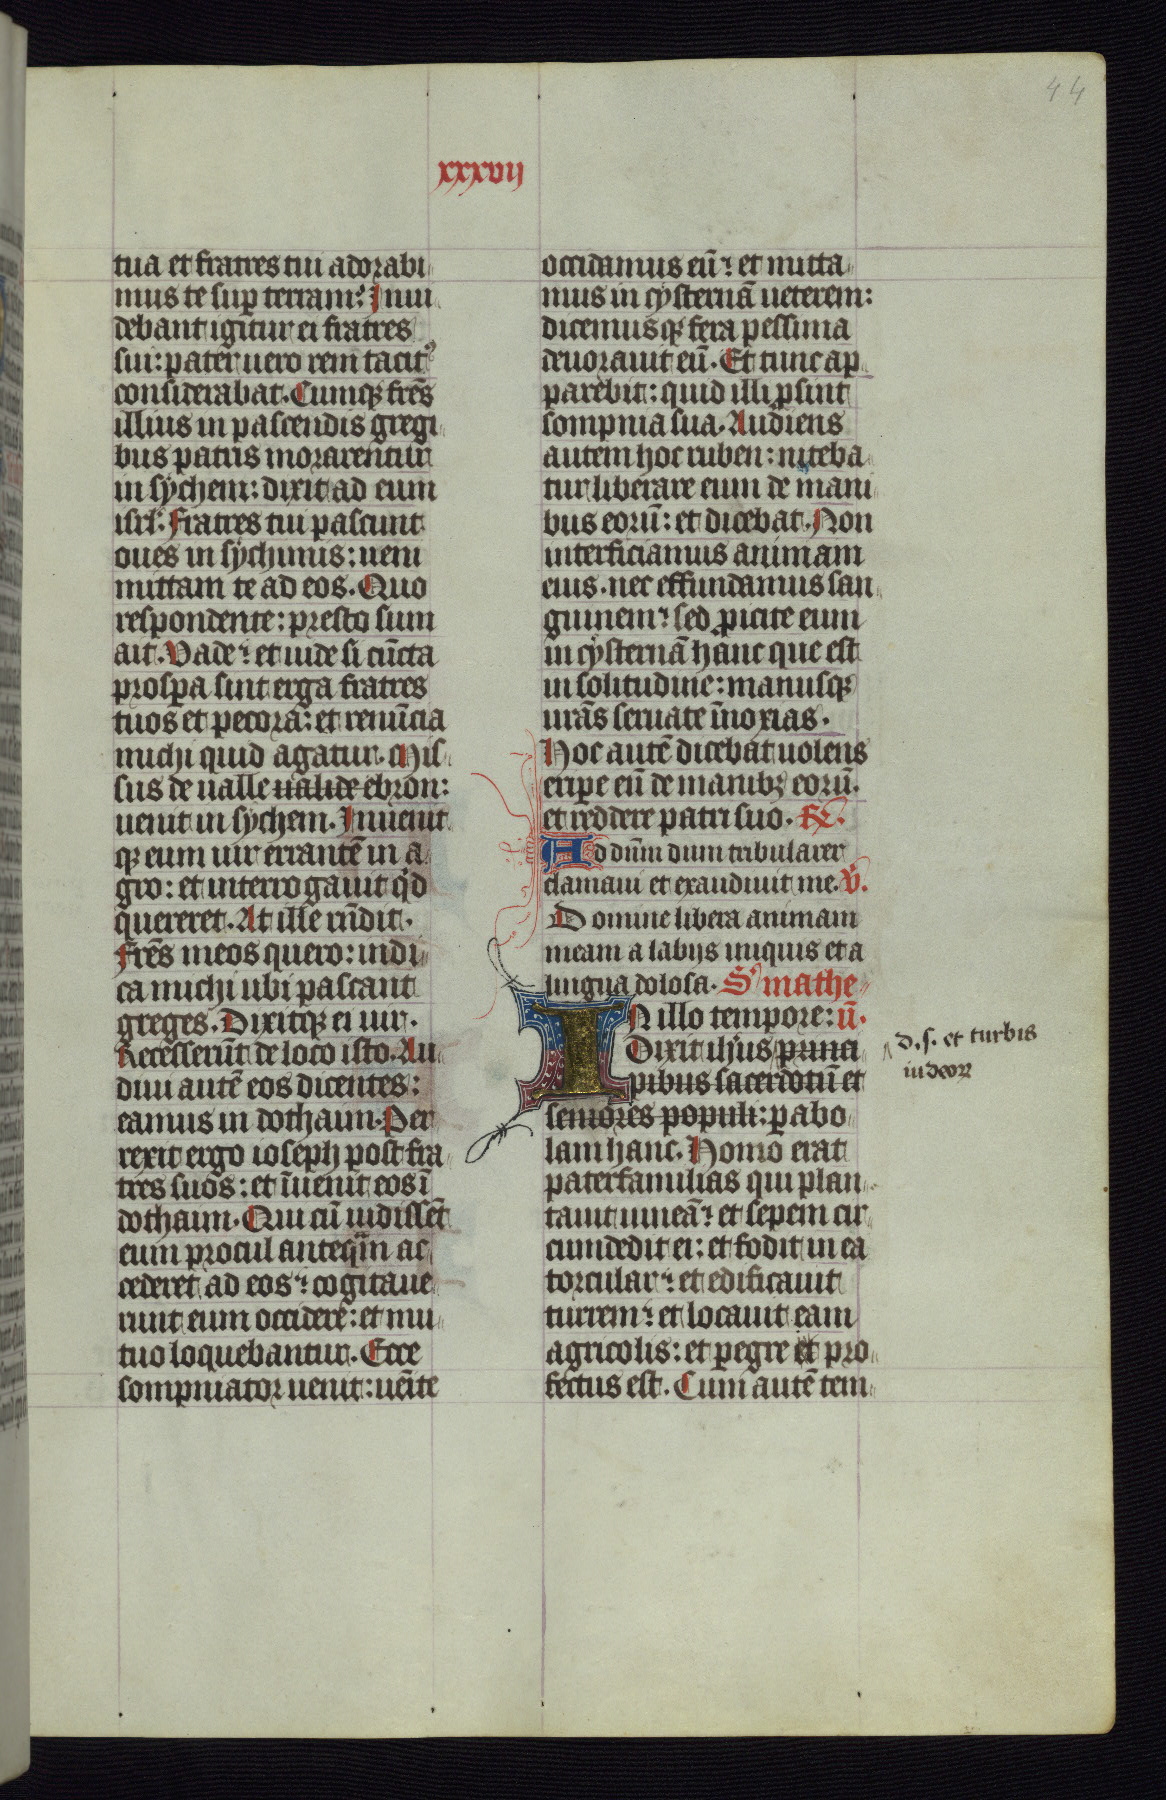 44
xxxvij
tua et fratres tui adorabi
mus te sup terram? Inui
debant igitur ei fratres
sui: pater uero rem tacitꝰ
considerabat. Cumqꝫ fr̃es
illius in pascendis gregi
bus patris morarentur
in sychem: dixit ad eum
isrl̃: Fratres tui pascunt
oues in sychimis: ueni
mittam te ad eos. Quo
respondente: presto sum
ait. Vade: et uide si cũcta
prosp̱a sint erga fratres
tuos et pecora: et renũcia
michi quid agatur. Mis
sus de ualle ualide ebron:
uenit in sychem. Inuenit
qꝫ eum uir errantẽ in a
gro: et interrogauit qͥd
quereret. At ille rñdit.
Fr̃es meos quero: indi
ca michi ubi pascant
greges. Dixitqꝫ ei uir.
Recesserũt de loco isto. Au
diui autẽ eos dicentes:
eamus in dothaim. Per
rexit ergo ioseph post fra
tres suos: et ĩuenit eos ĩ
dothaim. Qui cũ uidissẽt
eum procul anteqͣm ac
cederet ad eos: cogitaue
runt eum occidere: et mu
tuo loquebantur. Ecce
sompniator uenit: uẽite
occidamus eũ: et mitta
mus in cysternã ueterem:
dicemusqꝫ fera pessima
deuorauit eũ. Et tunc ap
parebit: quid illi ꝓsint
sompnia sua. Audiens
autem hoc ruben: niteba
tur liberare eum de mani
bus eorũ: et dicebat. Non
interficiamus animam
eius. nec effundamus san
guinem: sed ꝓicite eum
in cysternã hanc que est
in solitudine: manusqꝫ
urãs seruate ĩnoxias.
Hoc autẽ dicebat uolens
erip̱e eũ de manibꝫ eorũ.
et reddere patri suo. R̃.
Ad dñm dum tribularer
clamaui et exaudiuit me. Ṽ.
Domine libera animam
meam a labijs iniquis et a
lingua dolosa. S' mathe
IN illo tempore: ũ.
Dixit ihũs princi
pibus sacerdotũ et
seniores populi: ꝑabo
lam hanc. Homo erat
paterfamilias qui plan
tauit uineã: et sepem cir
cumdedit ei: et fodit in ea
torcular: et edificauit
turrem: et locauit eam
agricolis: et ꝑegre et pro
fectus est. Cum autẽ tem
d. s. et turbis
iudeoꝝ